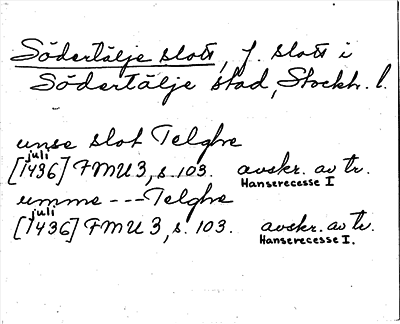 Södertälje slott, f. slott i
Södertälje stad, Stockh. l.
unse slot Telghe
juli
[1436] FMU 3, s. 103. avskr. av tr.
Hanserecesse I
umme --- Telghe
juli
[1436] FMU 3, s. 103. avskr. av tr.
Hanserecesse I.